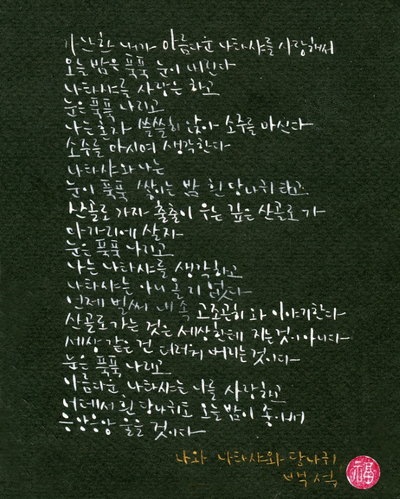 가난한 내가 아름다운 나타샤를 사랑해서
오늘 밤은 푹푹 눈이 내린다
나타샤를 사랑은 하고
눈은 푹푹 나리고
나는 혼자 쓸쓸히 앉아 소주를 마신다
소주를 마시며 생각한다
나타샤와 나는
눈이 푹푹 쌓이는 밤 흰 당나귀 타고
산골로 가자 출출이 우는 깊은 산골로 가
마가리에 살자
눈은 푹푹 나리고
나는 나타샤를 생각하고
나타샤는 아니 올 리 없다
언제 벌써 내 속 고조곤히 와 이야기한다
산골로 가는 것은 세상한테 지는 것이 아니다
세상 같은 건 더러워 버리는 것이다
눈은 푹푹 나리고
아름다운 나타샤는 나를 사랑하고
어데서 흰 당나귀도 오늘밤이 좋아서
응앙응앙 울을 것이다
나와 나타샤와 당나귀
백석
福